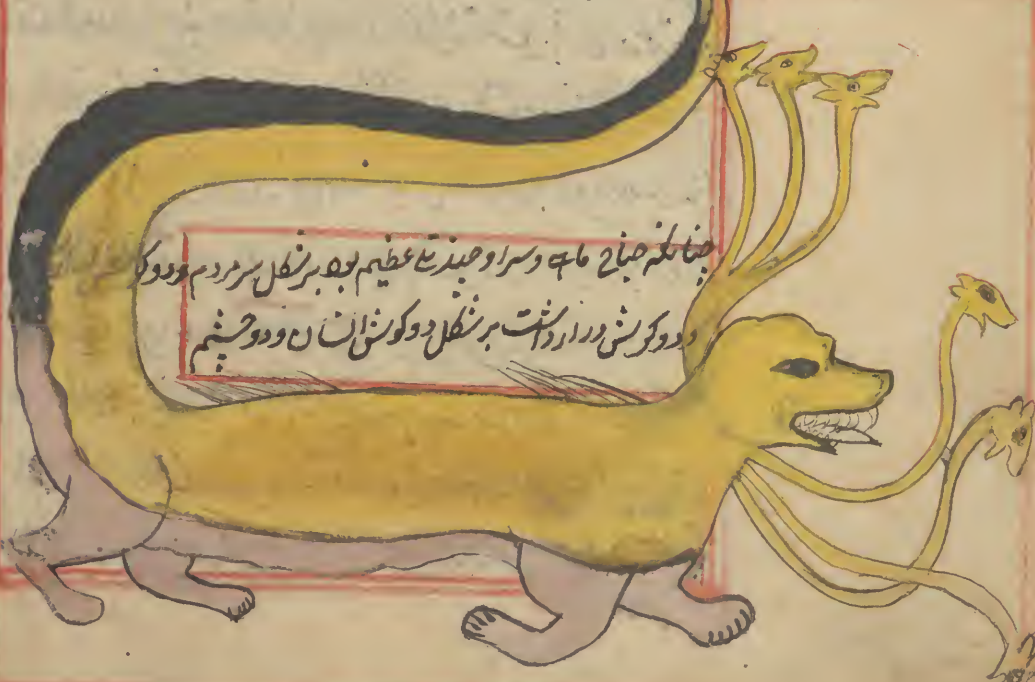 چنانکه جناح ماهی و سر او چند تلی عظیم بود بر شکل سر مردم و دو
و دو گوش دراز داشت بر شکل دو گوش انسان و دو چشم